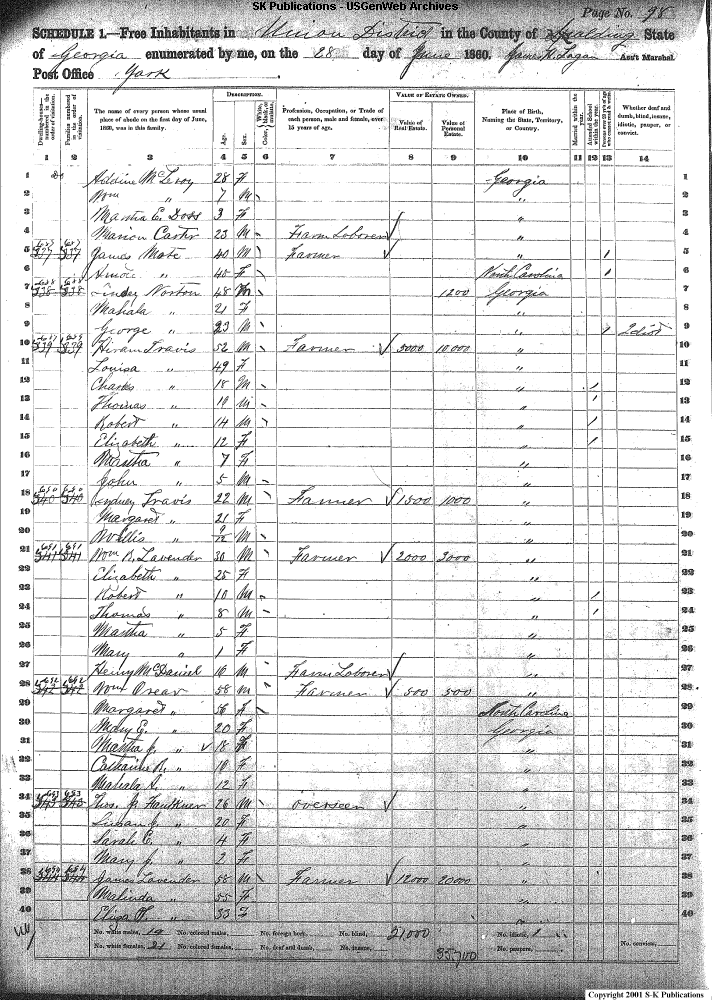 SK Publications - USGenWeb Archives
Page No. 98
SCHEDULE 1.—Free Inhabitants in Union District in the County of Spalding State
of Georgia enumerated by me, on the 28 day of June 1860. Ass't Marshal.
Post Office York.
DESCRIPTION. VALUE OF ESTATE OWNED.
Dwelling-houses—numbered in the order of visitation. Families numbered in the order of visitation. The name of every person whose usual place of abode on the first day of June, 1860, was in this family. Age. Sex. Color, White, black, or mulatto. Profession, Occupation, or Trade of each person, male and female, over 15 years of age. Value of Real Estate. Value of Personal Estate. Place of Birth, Naming the State, Territory, or Country. Married within the year. Attended School within the year. Whether deaf and dumb, blind, insane, idiotic, pauper, or convict.
1 2 3 4 5 6 7 8 9 10 11 12 13 14
1 McLeroy 28 F Georgia 1
2 Wm " 7 M " 2
3 Martha E. Doss 3 F " 3
4 Marion Carter 23 M Farm Laborer " 4
5 337 337 James Mote 40 M Farmer " 5
6 " 40 F North Carolina 6
7 338 338 Norton 48 M 1200 Georgia 7
8 Mahala " 21 F " 8
9 George " 23 M " Idiot 9
10 339 339 Hiram Travis 52 M Farmer 5000 10,000 " 10
11 Louisa " 49 F " 11
12 Charles " 18 M " 12
13 Thomas " M " 13
14 Robert " 14 M " 14
15 Elizabeth " 12 F " 15
16 Martha " 7 F " 16
17 John " 5 M " 17
18 340 340 Travis 22 M Farmer 1500 1000 " 18
19 Margaret " 21 F " 19
20 Willis " 9/12 M " 20
21 341 341 Wm R. Lavender 30 M Farmer 2000 3000 " 21
22 Elizabeth " 25 F " 22
23 Robert " 10 M " 23
24 Thomas " 8 M " 24
25 Martha " 5 F " 25
26 Mary " 1 F " 26
27 Henry McDaniel M Farm Laborer " 27
28 342 342 Wm Orear 58 M Farmer 500 500 " 28
29 Margaret " 56 F North Carolina 29
30 Mary E. " 20 F Georgia 30
31 Martha J. " 18 F " 31
32 Catharine " F " 32
33 Mahala A. " 12 F " 33
34 343 343 Thos. J. Faulkner 26 M Overseer " 34
35 Susan J. " 20 F " 35
36 Sarah E. " 4 F " 36
37 Mary J. " 2 F " 37
38 344 344 James Lavender 58 M Farmer 12000 20000 " 38
39 Malinda " 55 F " 39
40 Eliza " 33 F " 40
No. white males, 19 No. colored males, No. foreign born, No. blind, 21,000 No. idiotic, 1
No. white females, 21 No. colored females, No. deaf and dumb, No. insane, No. paupers, No. convicts,
Copyright 2001 S-K Publications